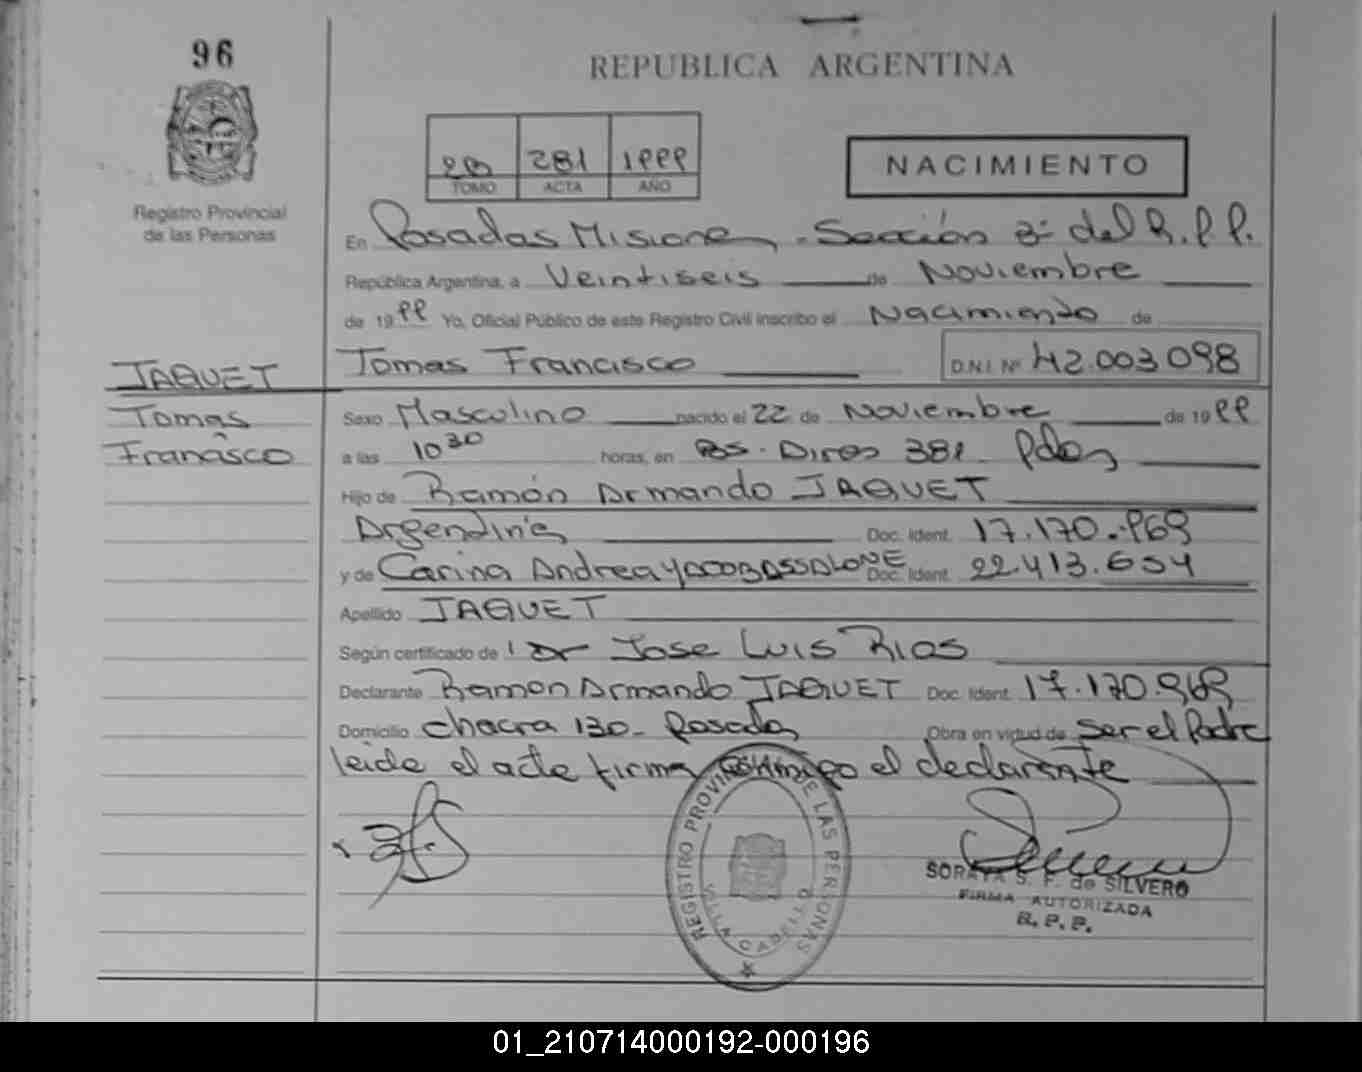 96
REPUBLICA ARGENTINA
2B 281 1999
TOMO ACTA AÑO
NACIMIENTO
Registro Provincial
de las Personas
En Posadas Misiones - Sección 3ª del R.P.P.
República Argentina, a Veintiseis de Noviembre
de 1999 Yo, Oficial Público de este Registro Civil inscribo el Nacimiento de
JAQUET
Tomas Francisco D.N.I. Nº 42.003.098
Tomas
Francisco
Sexo Masculino nacido el 22 de Noviembre de 1999
a las 10 30 horas, en Bs. Aires 381 - Pdas
Hijo de Ramón Armando JAQUET
Argentina Doc. Ident. 17.170.969
y de Carina Andrea YACOBASSALONE Doc. Ident. 22.413.654
Apellido JAQUET
Según certificado de Dr Jose Luis Rios
Declarante Ramon Armando JAQUET Doc. Ident. 17.170.969
Domicilio Chacra 130 - Posadas Obra en virtud de Ser el Padre
leida el acta firma conmigo el declarante
REGISTRO PROVINCIAL DE LAS PERSONAS
VILLA CABELLO
SORAYA S. F. de SILVERO
FIRMA AUTORIZADA
R. P. P.
01_210714000192-000196